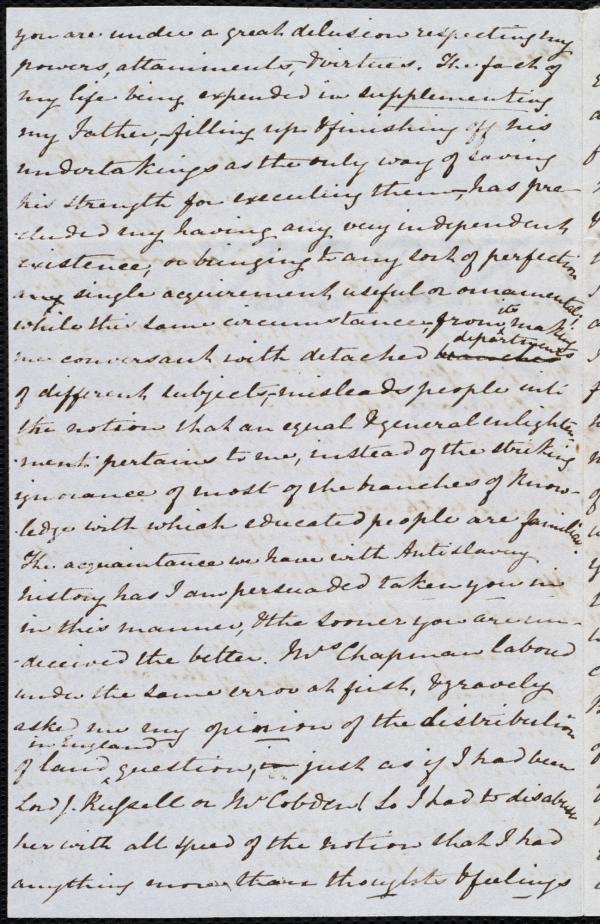 you are under a great delusion respecting my
powers, attainments, & virtues. The fact of
my life being expended in supplementing
my Father,– filling up & finishing off his
undertakings as the only way of saving
his strength for executing them–, has pre-
-cluded my having any very independent
existence, or bringing to any sort of perfection
any single acquirement useful or ornamental;
while this same circumstance, from its making
me conversant with detached departments
of different subjects,– misleads people into
the notion that an equal & general enlighten-
-ment pertains to me, instead of the striking
ignorance of most of the branches of know-
-ledge with which educated people are familiar.
The acquaintance we have with Antislavery
history has I am persuaded taken you in
in this manner, & the sooner you are un-
-deceived the better. Mrs Chapman labored
under the same error at first, & gravely
asked me my opinion of the distribution
of land in England question, just as if I had been
Lord J. Russell or Mr Cobden! So I had to disabuse
her with all speed of the notion that I had
anything more than thoughts & feelings